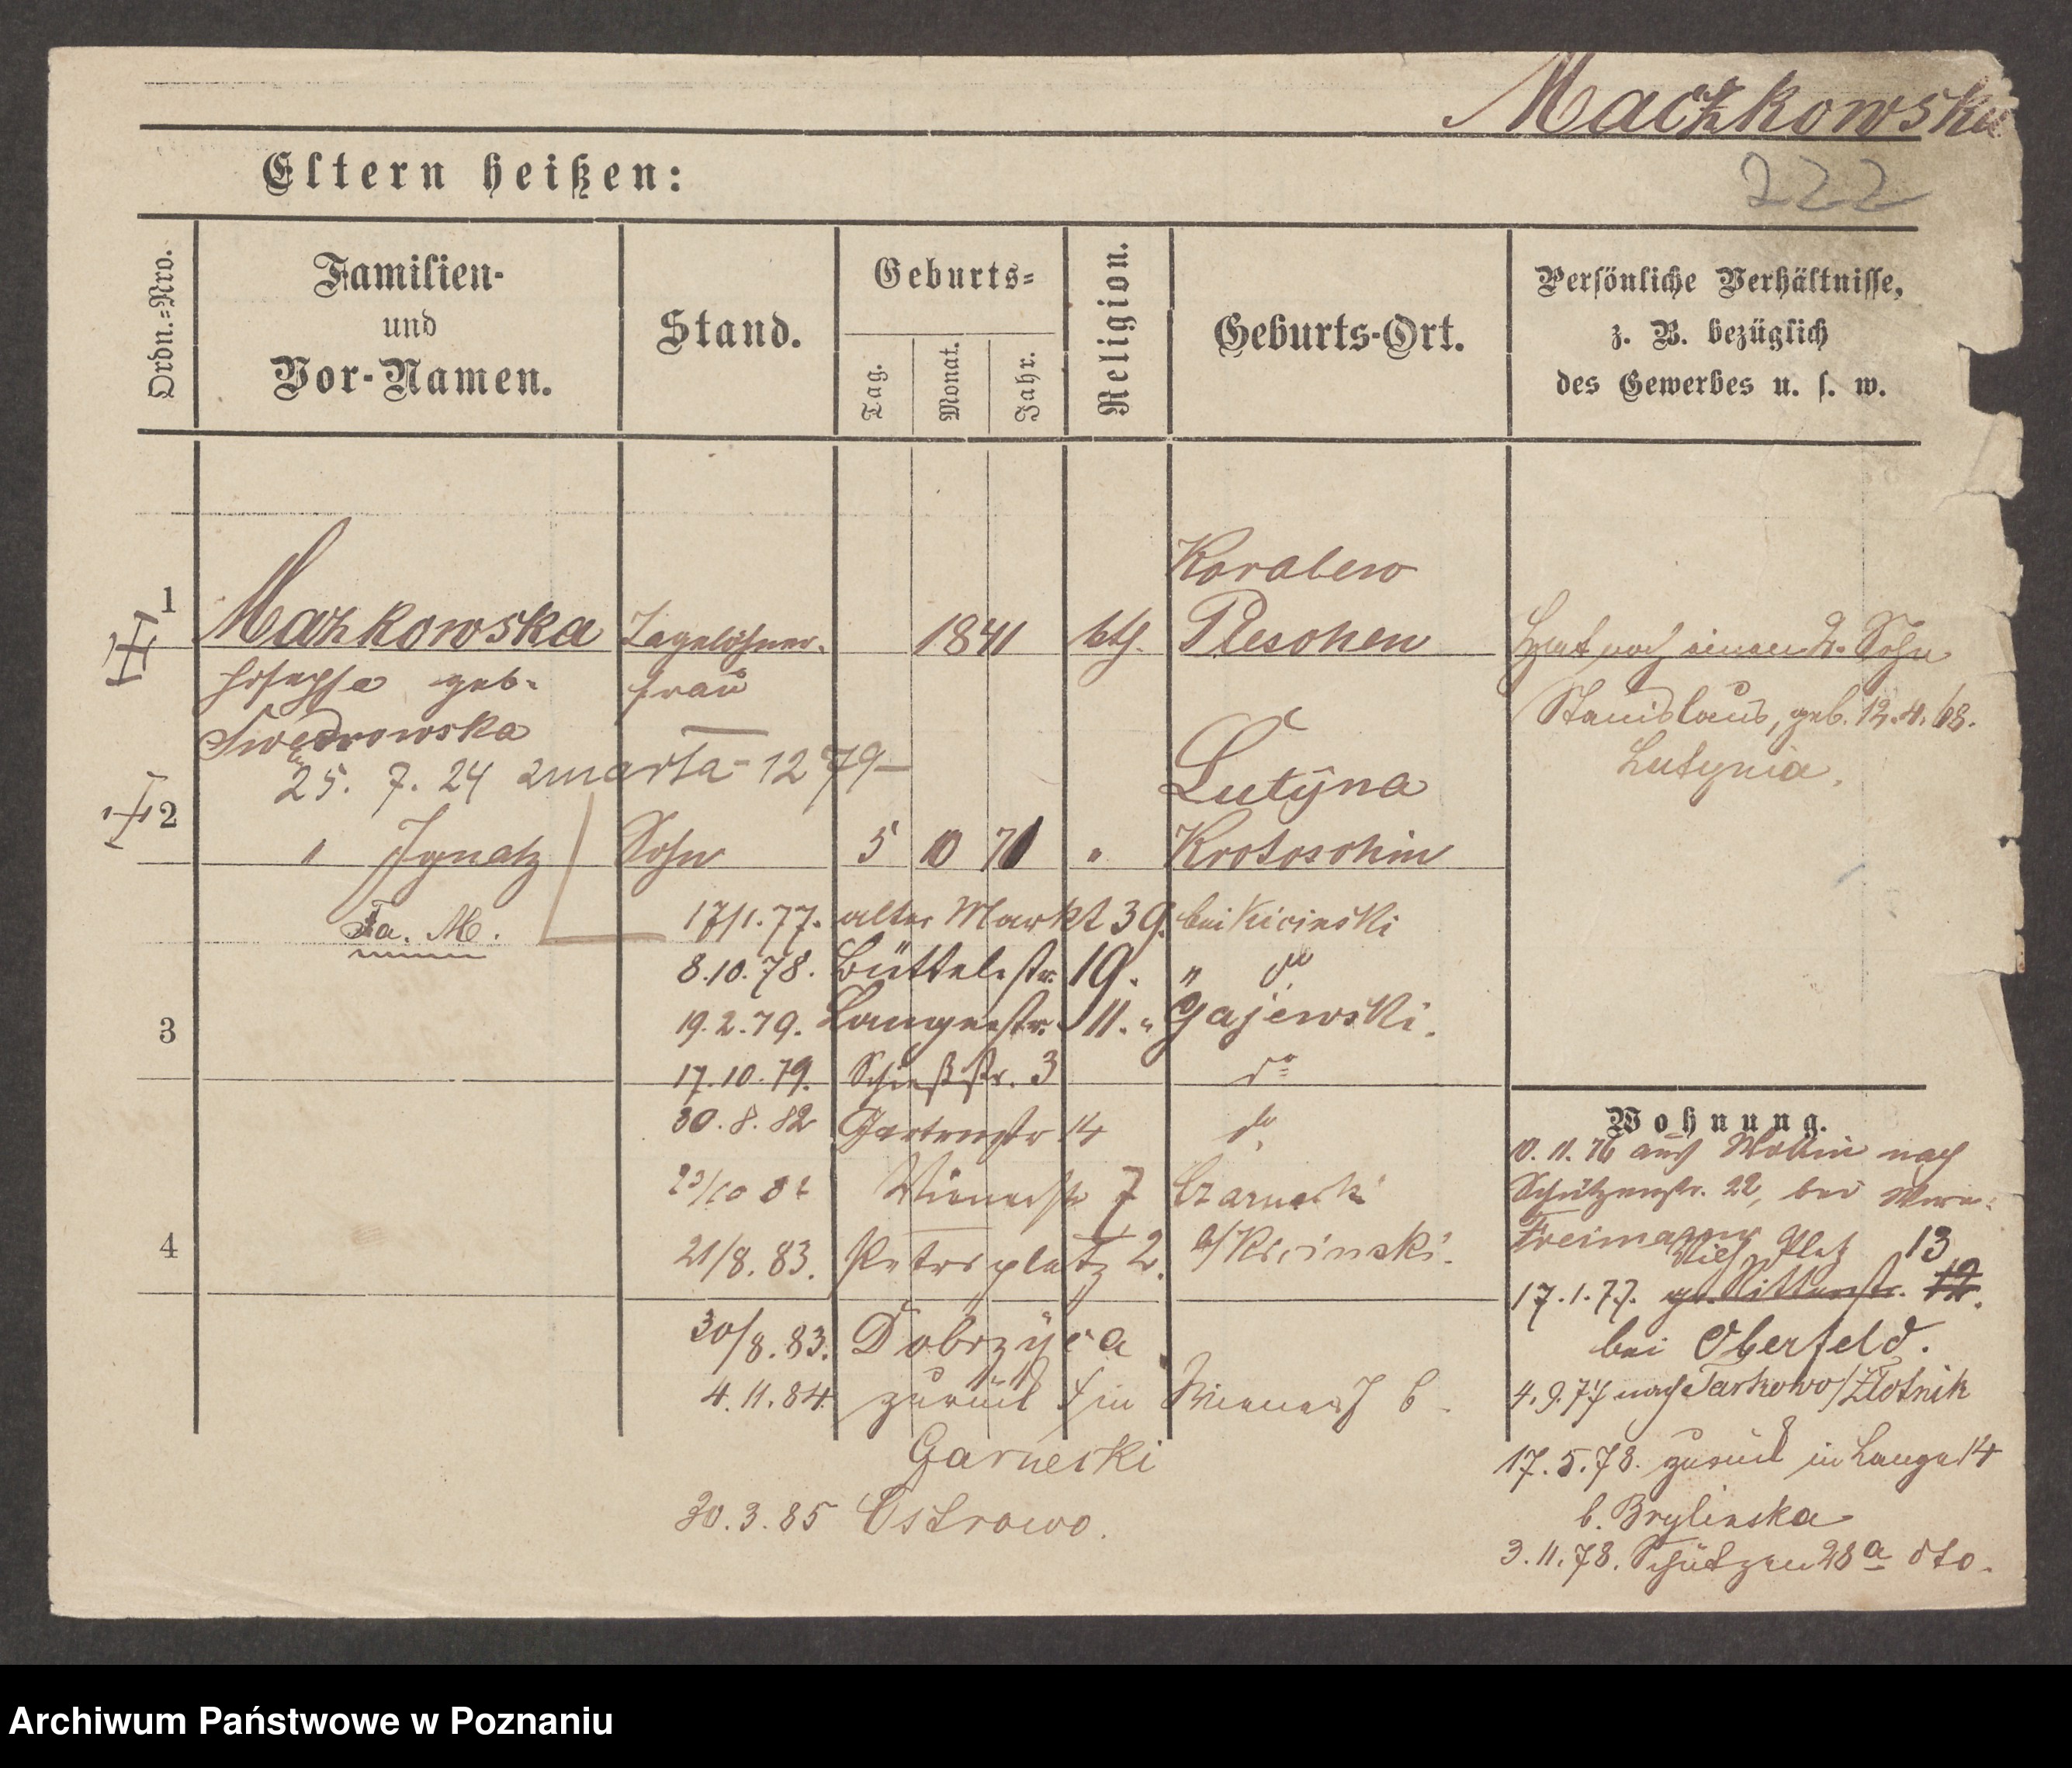 Maczkowska
222
Eltern heißen:
Ordn.-Nro.
Familien-
und
Vor-Namen.
Stand.
Geburts-
Tag.
Monat.
Jahr.
Religion.
Geburts-Ort.
Persönliche Verhältnisse,
z. B. bezüglich
des Gewerbes u. s. w.
Koralew
1 Mazkowska Tagelöhner- 1841 kth. Pleschen Hat noch einen Sohn
Josepha geb. frau Stanislaus, geb. 12.4.68.
Swedrowska Lutynia.
25. 7. 24 zmarła - 1279 -
Lutÿna
2 " Ignatz Sohn 5 10 71 " Krotoschin
Fa. M.
17/1.77. alter Markt 39. bei Kicinski
8.10.78. Büttelstr. 19. " do
3 19.2.79. Langestr. 11. " Gajewski.
17.10.79. Schießstr. 3 do
Wohnung.
30.8.82 Gartenstr 14 do
10.11.76 aus Mottin nach
Wienerstr 7 Czarnecki
Schützenstr. 22, bei
4 21/8.83. Petriplatz 2. b/Kicinski.
Freimann
Vieh Platz 13
17.1.77. gr. Ritterstr. 12.
30/8.83. Dobrzÿca
bei Oberfeld.
4.11.84. zurück in Wienerst 6
4.9.77 nach Tarkowo/Zlotnik
Garnecki
17.5.78. zurück in Lange 14
b. Brylinska
30.3.85 Ostrowo.
3.11.78. Schützen 28a dto.
Archiwum Państwowe w Poznaniu